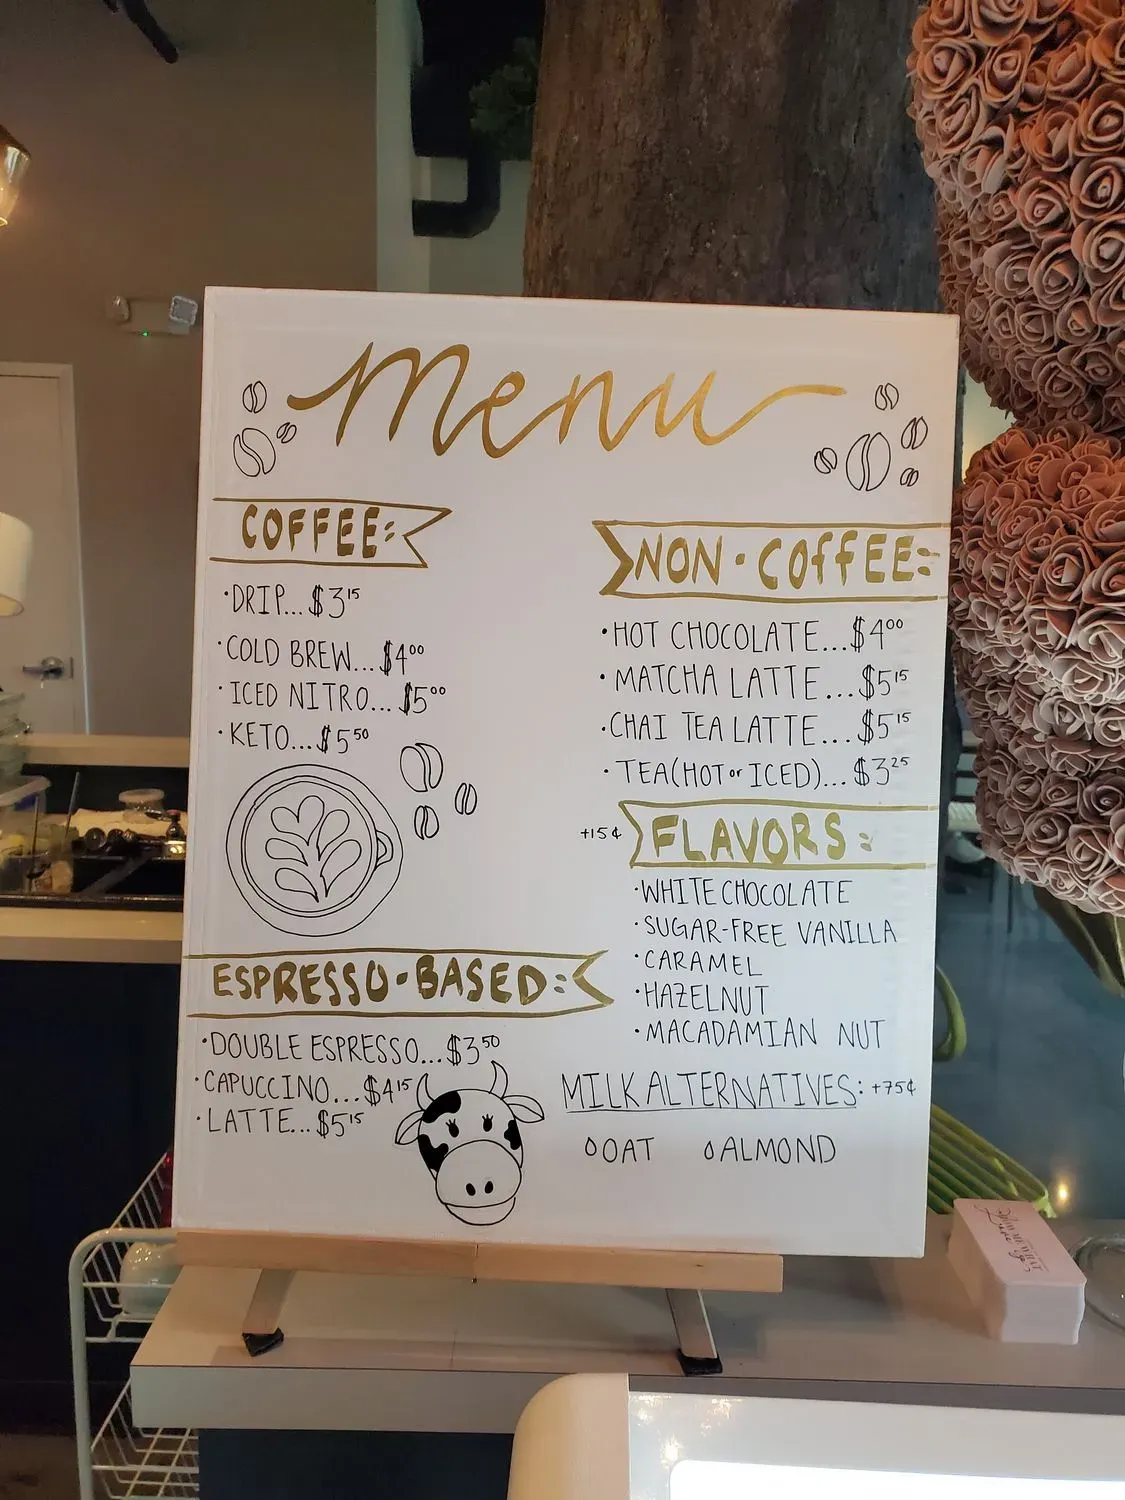 menu
COFFEE:
·DRIP...$3¹⁵
·COLD BREW...$4⁰⁰
·ICED NITRO...$5⁰⁰
·KETO...$5⁵⁰
ESPRESSO·BASED:
·DOUBLE ESPRESSO...$3⁵⁰
·CAPUCCINO...$4¹⁵
·LATTE...$5¹⁵
NON·COFFEE:
·HOT CHOCOLATE...$4⁰⁰
·MATCHA LATTE...$5¹⁵
·CHAI TEA LATTE...$5¹⁵
·TEA(HOT or ICED)...$3²⁵
+15¢ FLAVORS:
·WHITE CHOCOLATE
·SUGAR-FREE VANILLA
·CARAMEL
·HAZELNUT
·MACADAMIAN NUT
MILK ALTERNATIVES: +75¢
OAT ALMOND